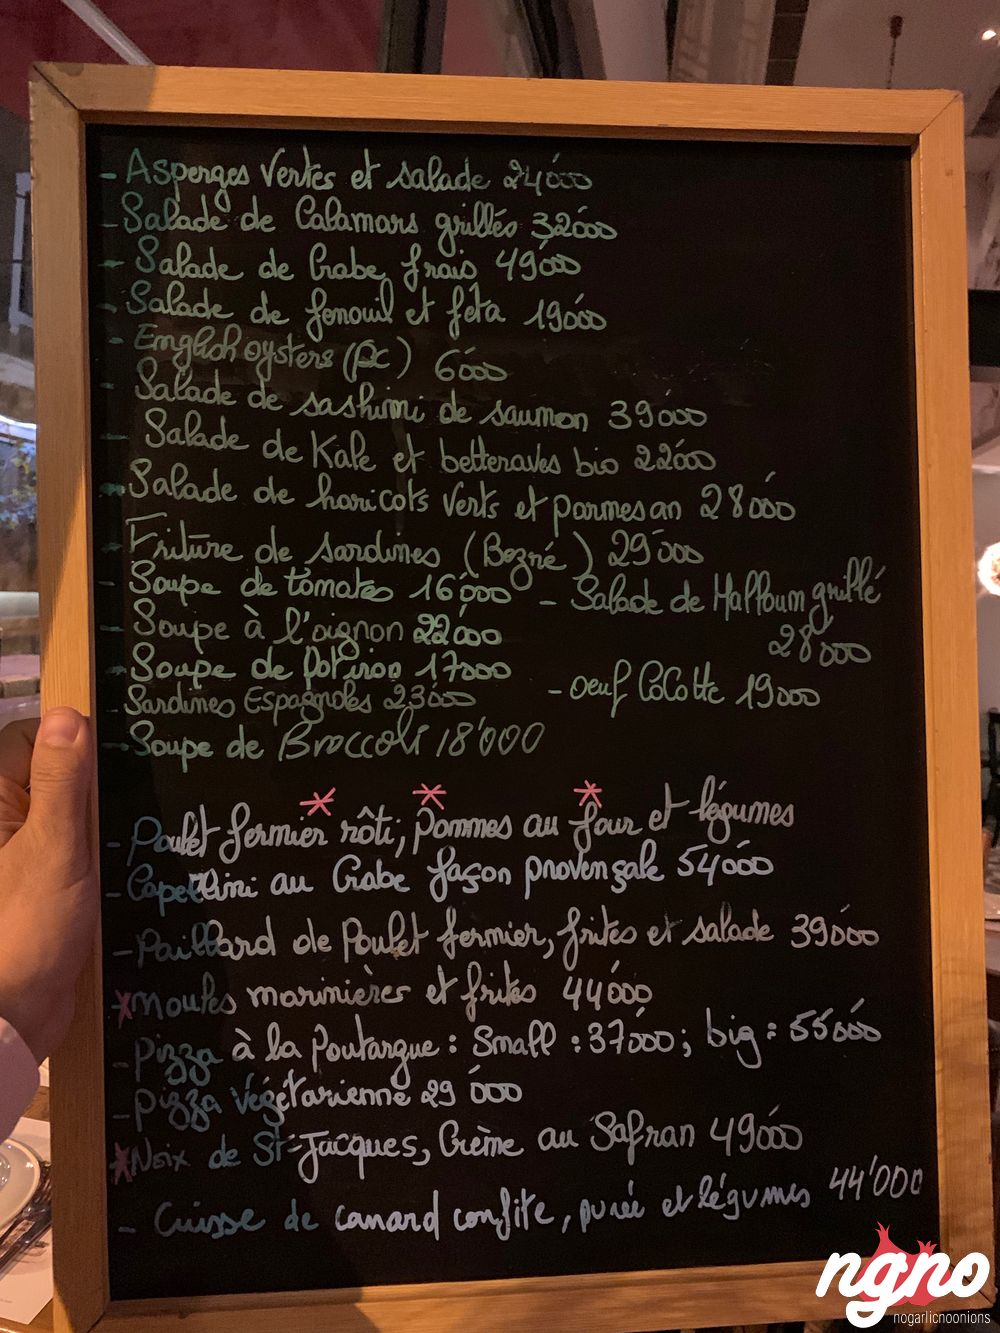 - Asperges Vertes et salade 24'000
- Salade de Calamars grillés 32'000
- Salade de Crabe frais 49'000
- Salade de fenouil et feta 19'000
- English oysters (pc) 6'000
- Salade de sashimi de saumon 39'000
Salade de Kale et betteraves bio 22'000
- Salade de haricots verts et parmesan 28'000
- Friture de sardines (Bezné) 29'000
- Soupe de tomates 16'000
- Salade de Halloum grillé
28'000
- Soupe à l'oignon 22'000
- Soupe de Potiron 17'000
- Sardines Espagnoles 23'000
- oeuf CoCotte 19'000
- Soupe de Broccoli 18'000
* * *
- Poulet fermier rôti, pommes au four et légumes
- Capellini au Crabe façon provençale 54'000
- Paillard de Poulet fermier, frites et salade 39'000
* Moules marinières et frites 44'000
- Pizza à la Poutargue : Small : 37'000 ; big : 55'000
- Pizza végétarienne 29'000
* Noix de St-Jacques, Crème au Safran 49'000
- Cuisse de canard confite, purée et légumes 44'000
ngno
nogarlicnoonions